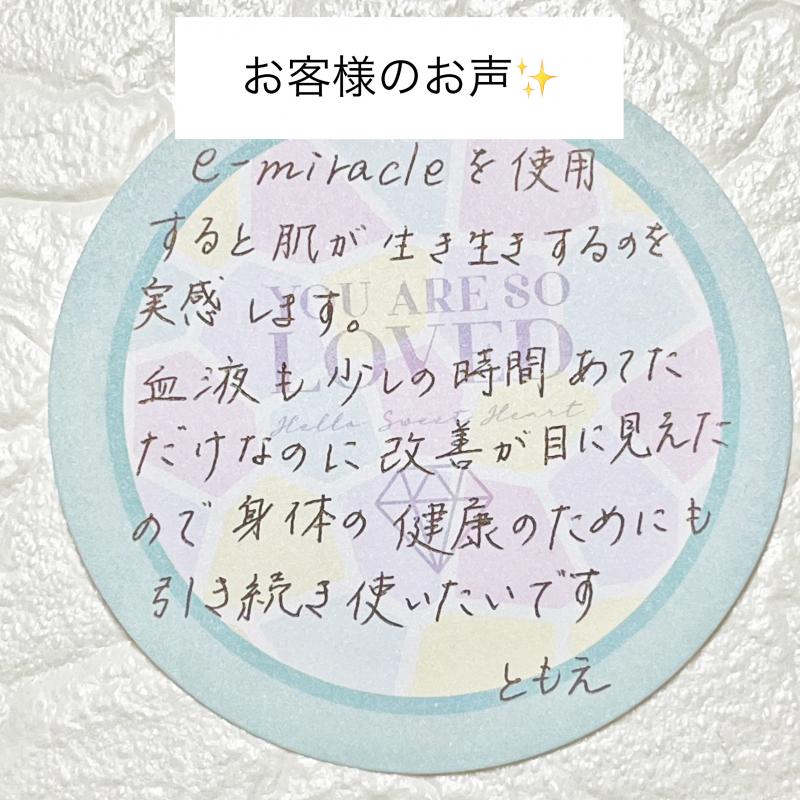 お客様のお声✨
e-miracleを使用
すると肌が生き生きするのを
実感します。
YOU ARE SO
LOVED
血液も少しの時間あてた
Hello Sweet Heart
だけなのに改善が目に見えた
ので身体の健康のためにも
引き続き使いたいです
ともえ